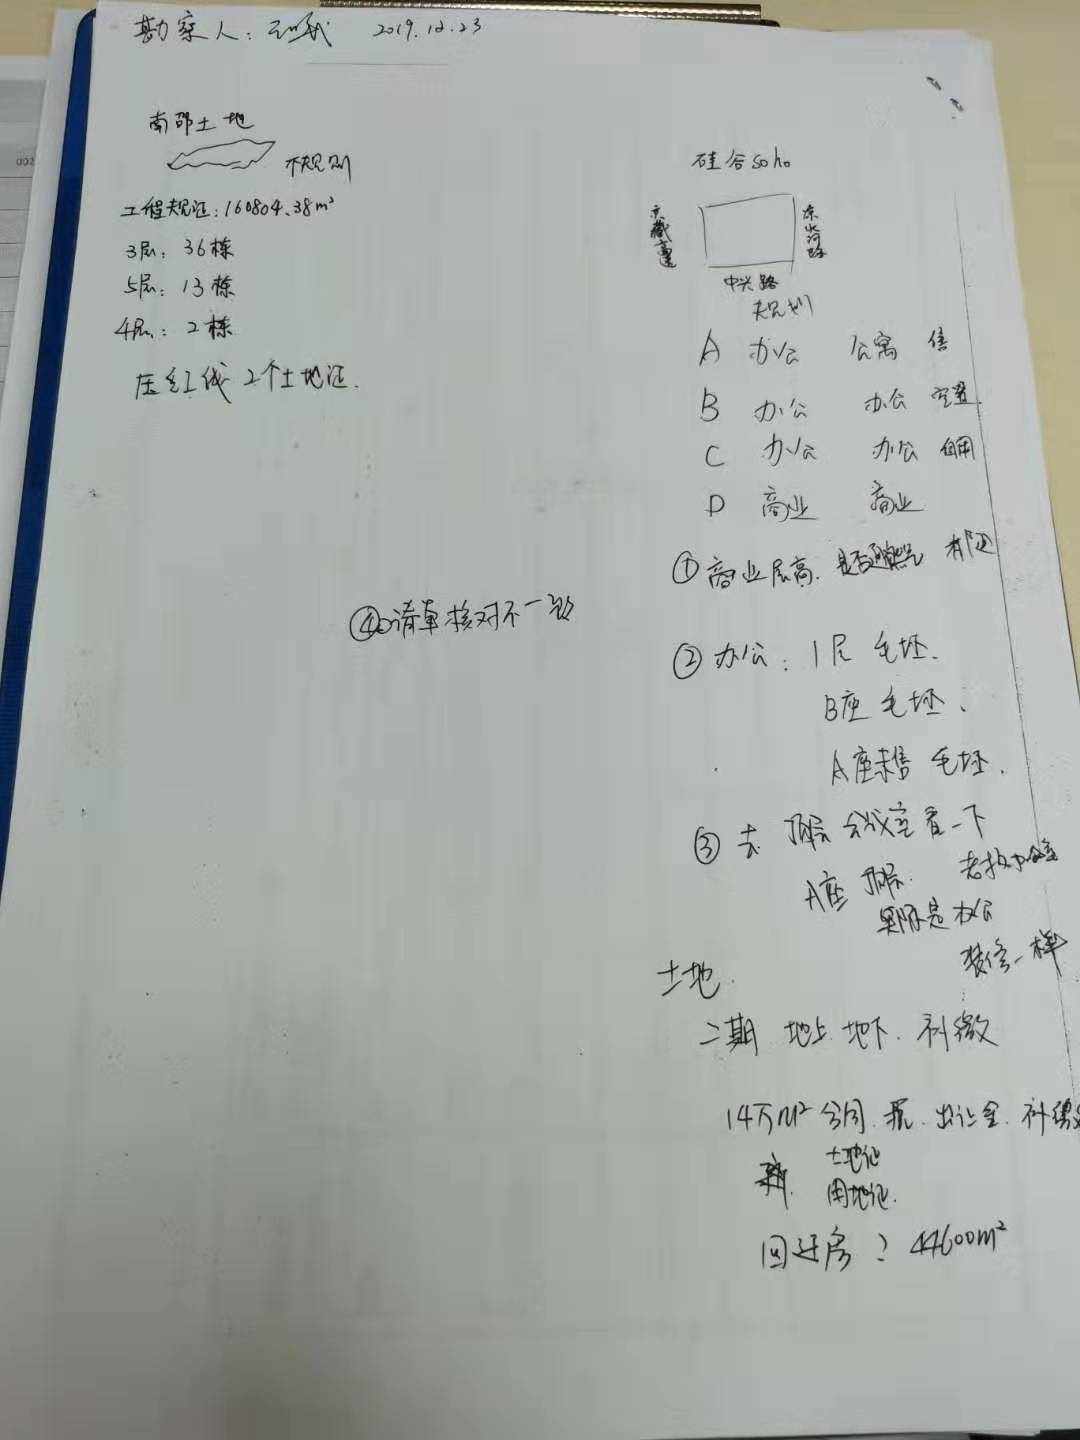 勘察人: 2019.12.23
南邵土地
不规则
工程规证: 160804.38m²
3层: 36栋
5层: 13栋
4层: 2栋
压红线 2个土地证.
④清单核对不一致
硅谷soho
京藏高速
东水河路
中兴路
规划
A 办公 公寓 售
B 办公 办公 空置
C 办公 办公 自用
D 商业 商业
①商业层高. 是否
② 办公: 1层 毛坯.
B座 毛坯.
A座未售 毛坯.
③ 去 顶层 会议室看一下
A座 顶层.
实际是办公
装修一样
土地.
二期 地上 地下. 补缴
14万m² 合同. 出让金. 补缴
土地证
用地证.
回迁房? 44600m²